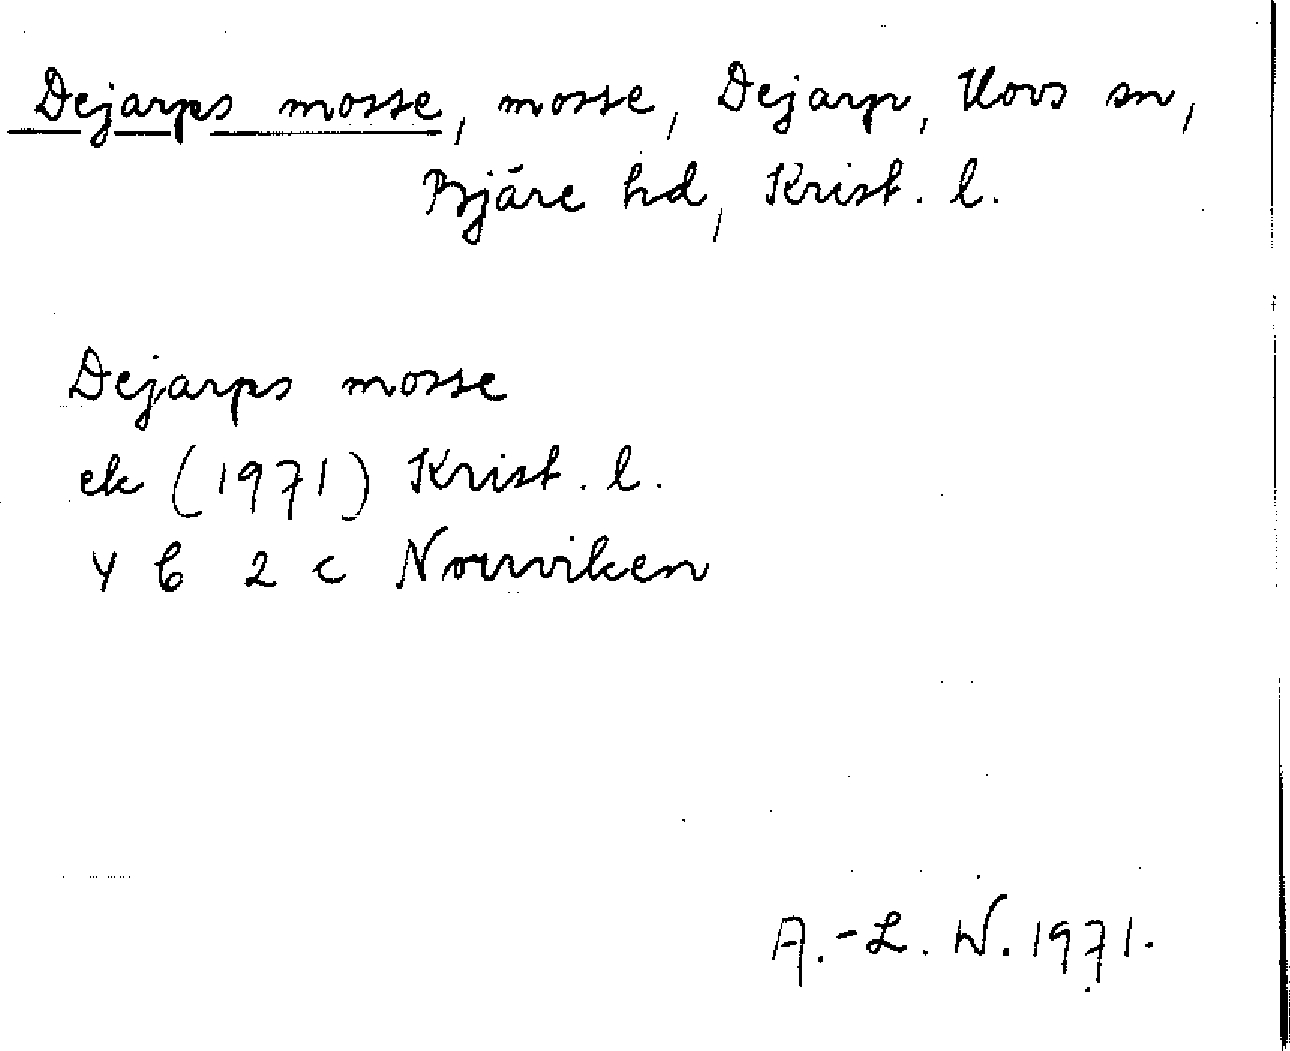 Dejarps mosse, mosse, Dejarp, Hovs sn,
Bjäre hd, Krist. l.
Dejarps mosse
ek (1971) Krist. l.
4 C 2 c Norrviken
A.-L. W. 1971.